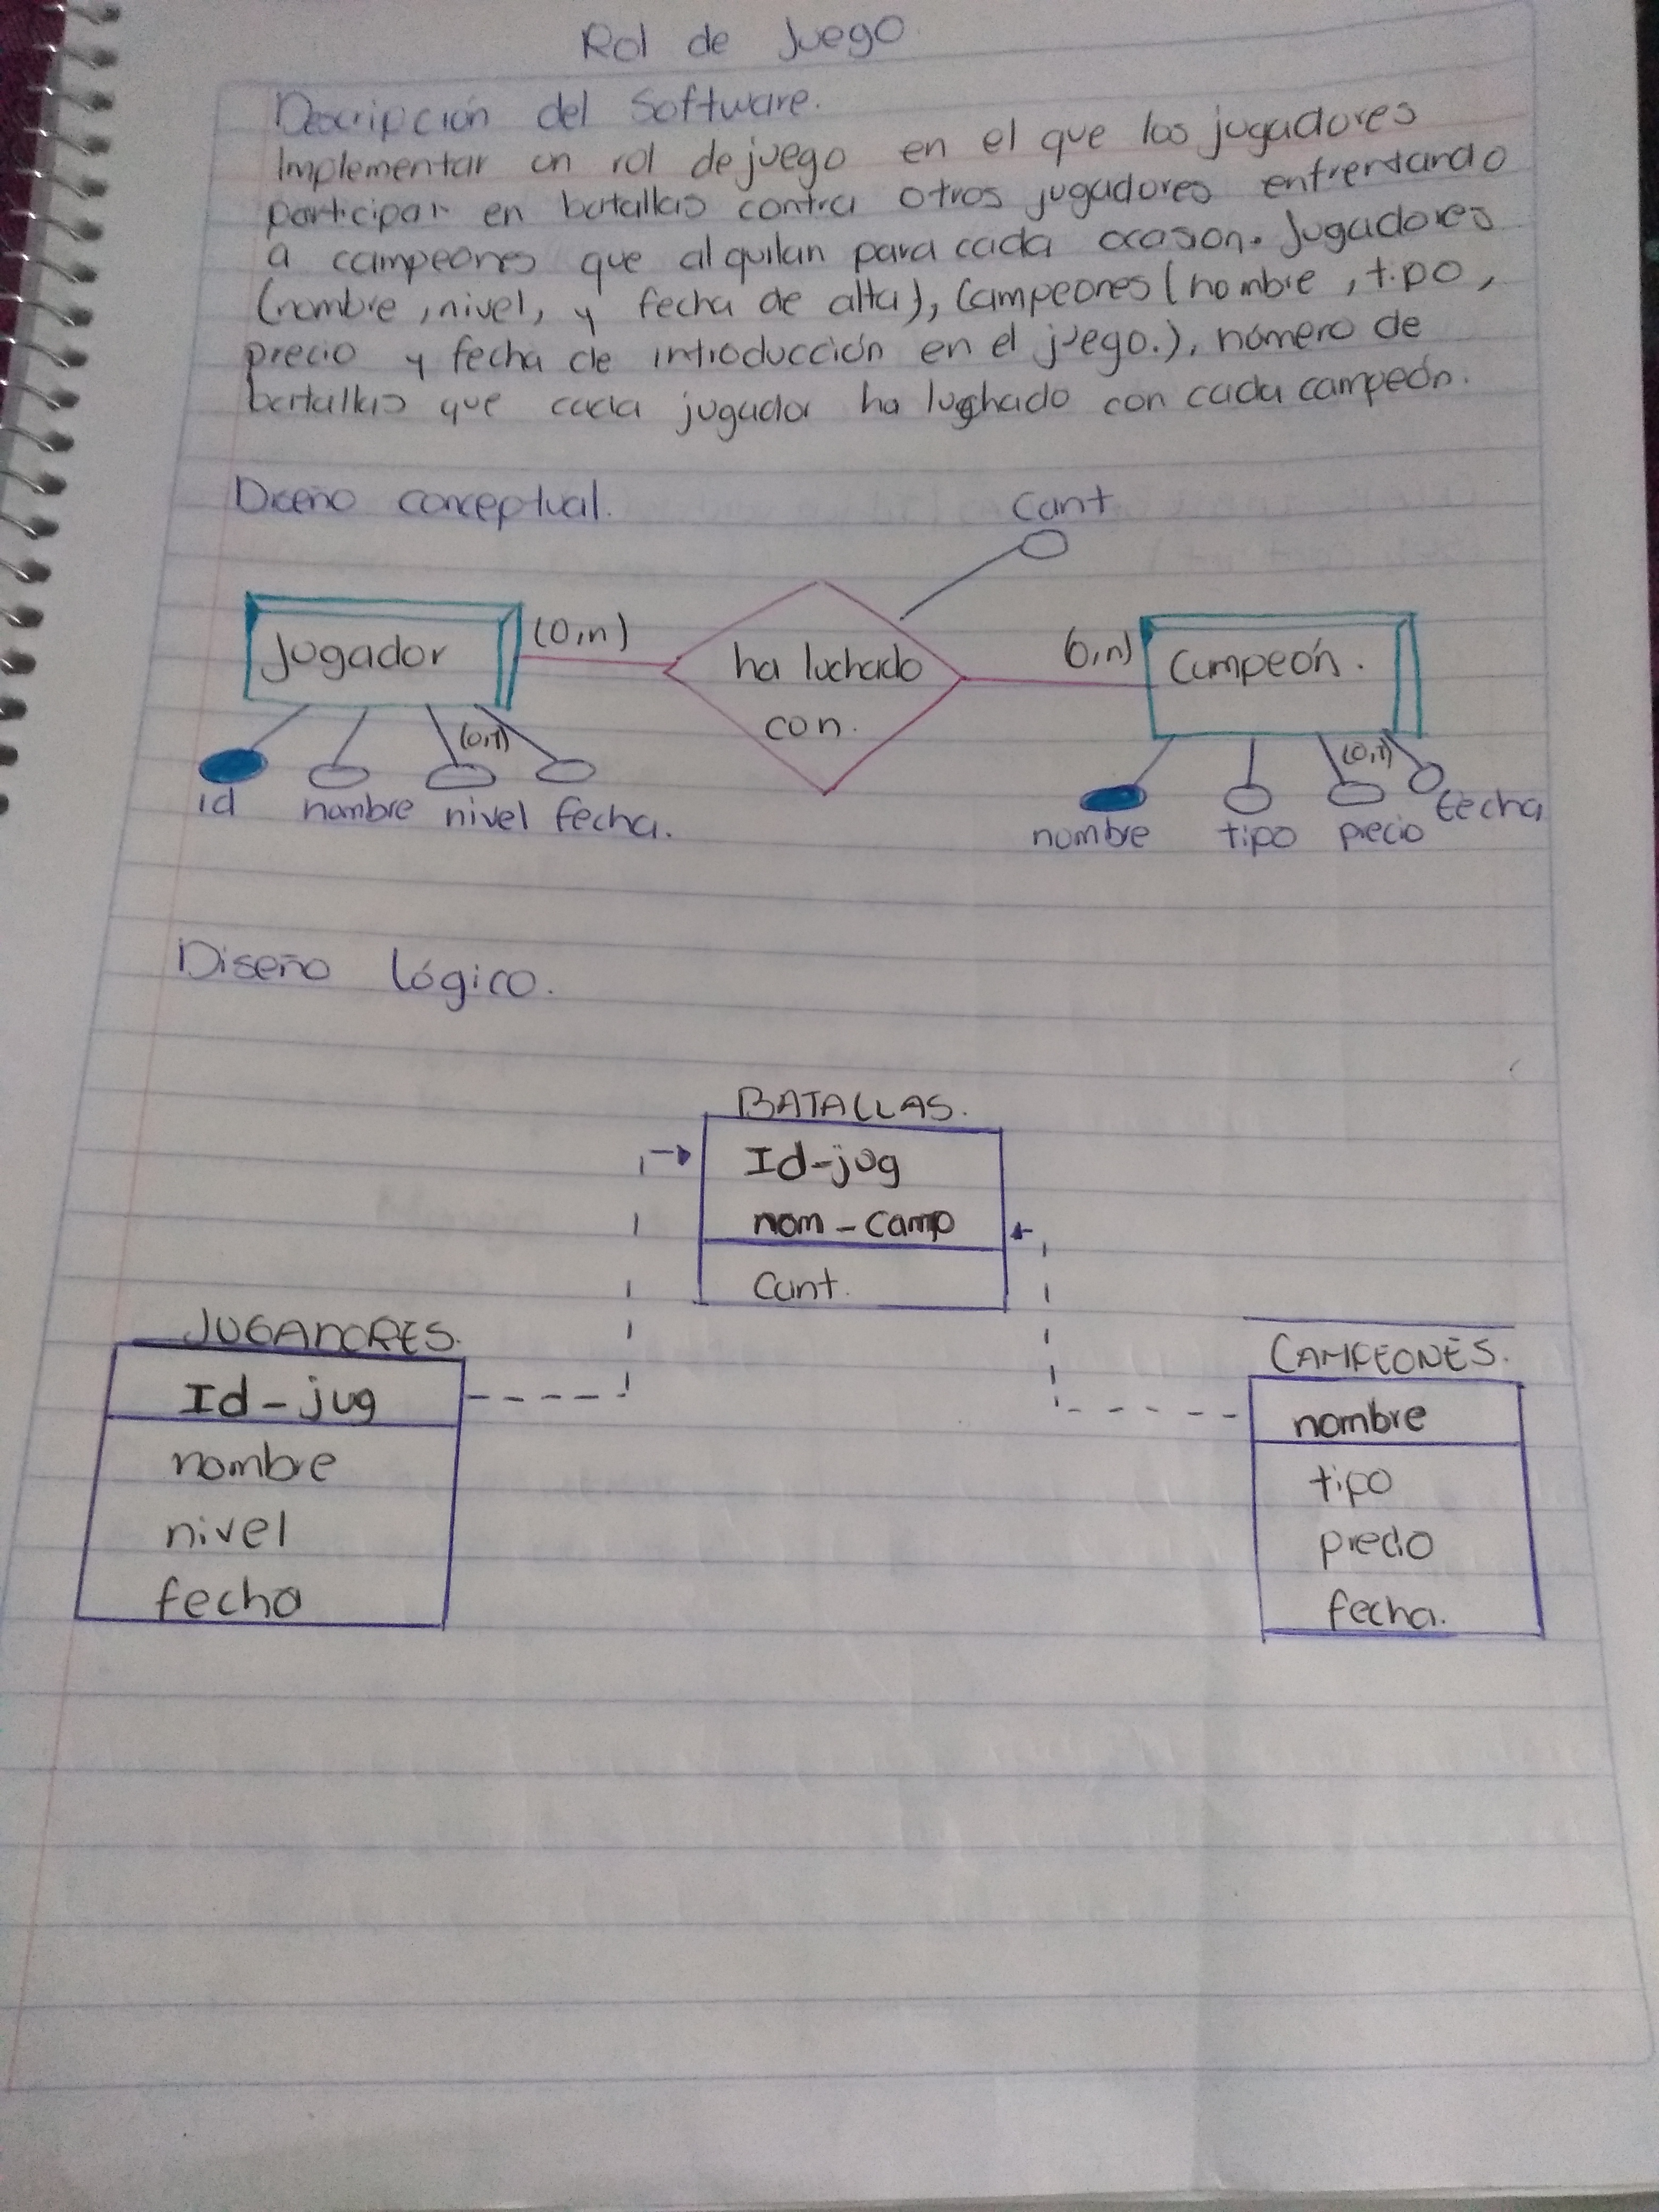 Rol de Juego
Descripción del Software.
Implementar un rol de juego en el que los jugadores
participar en batallas contra otros jugadores enfrentando
a campeones que alquilan para cada ocason. Jugadores
(nombre, nivel, y fecha de alta), Campeones (nombre, tipo,
precio y fecha de introducción en el juego.), número de
batallas que cada jugador ha luchado con cada campeón.
Diseño conceptual.
Cant
Jugador (0,n) ha luchado (0,n) Campeón.
con.
(0,1) (0,1)
id nombre nivel fecha. nombre tipo precio fecha
Diseño lógico.
BATALLAS.
Id-jug
nom-camp
Cant.
JUGADORES.
Id-jug
nombre
nivel
fecha
CAMPEONES.
nombre
tipo
precio
fecha.